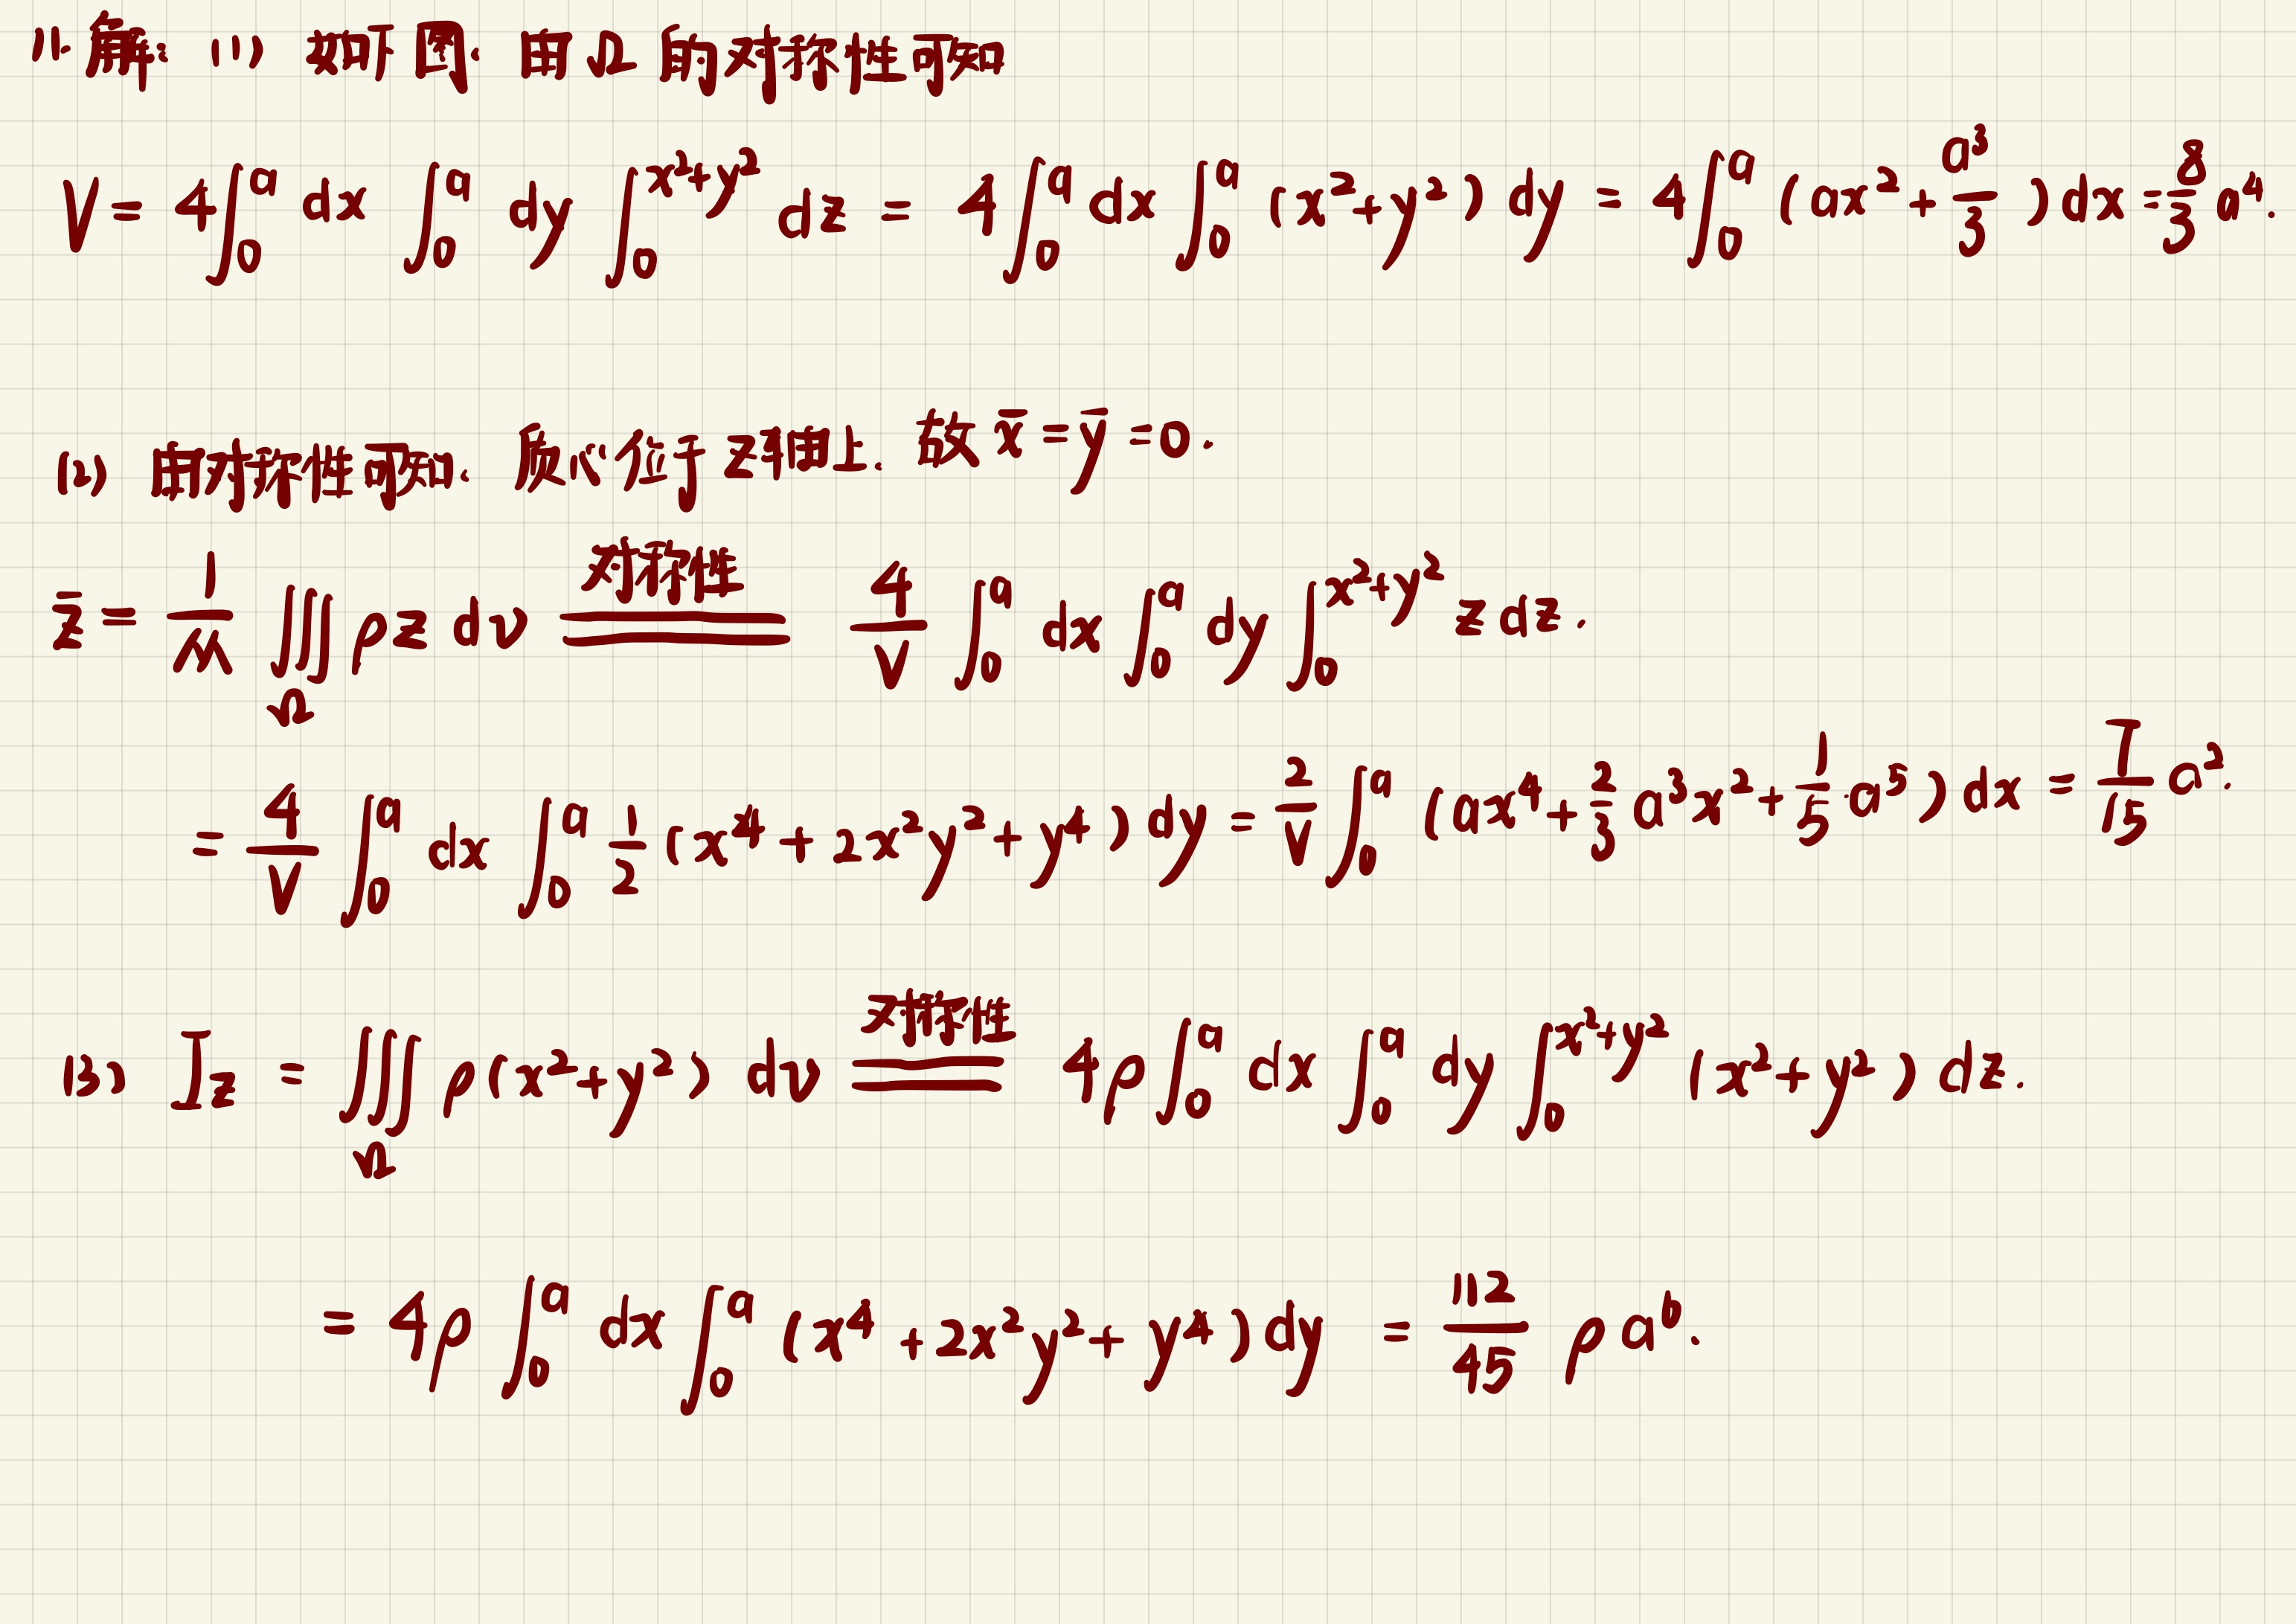 11. 解: (1) 如下图. 由 Ω 的对称性可知
V = 4∫₀ᵃ dx ∫₀ᵃ dy ∫₀^(x²+y²) dz = 4∫₀ᵃ dx ∫₀ᵃ (x²+y²) dy = 4∫₀ᵃ (ax² + a³/3) dx = 8/3 a⁴.
(2) 由对称性可知. 质心位于 z 轴上. 故 x̄ = ȳ = 0.
z̄ = 1/M ∭_Ω ρz dv ==对称性== 4/V ∫₀ᵃ dx ∫₀ᵃ dy ∫₀^(x²+y²) z dz.
= 4/V ∫₀ᵃ dx ∫₀ᵃ 1/2 (x⁴ + 2x²y² + y⁴) dy = 2/V ∫₀ᵃ (ax⁴ + 2/3 a³x² + 1/5 a⁵) dx = 7/15 a².
(3) I_z = ∭_Ω ρ(x²+y²) dv ==对称性== 4ρ∫₀ᵃ dx ∫₀ᵃ dy ∫₀^(x²+y²) (x²+y²) dz.
= 4ρ ∫₀ᵃ dx ∫₀ᵃ (x⁴ + 2x²y² + y⁴) dy = 112/45 ρa⁶.